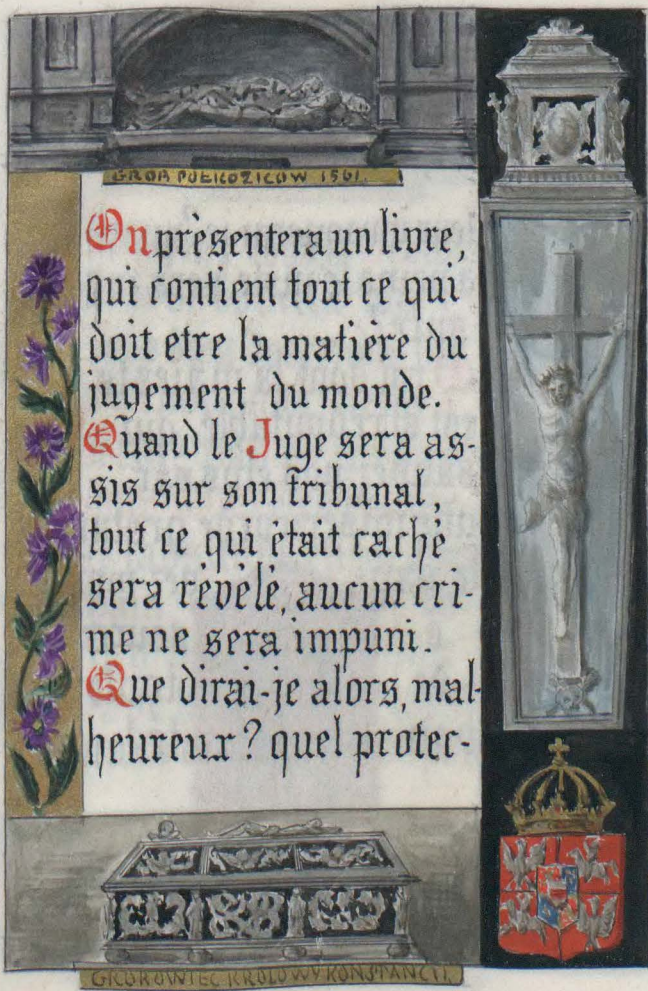 GROB POŁKOZICOW 1561.
On prèsentera un livre,
qui contient tout ce qui
doit etre la matière du
jugement du monde.
Quand le Juge sera as-
sis sur son tribunal,
tout ce qui ètait cachè
sera rèvèlè, aucun cri-
me ne sera impuni.
Que dirai-je alors, mal-
heureux? quel protec-
GROBOWIEC KROLOWY KONSTANCII.